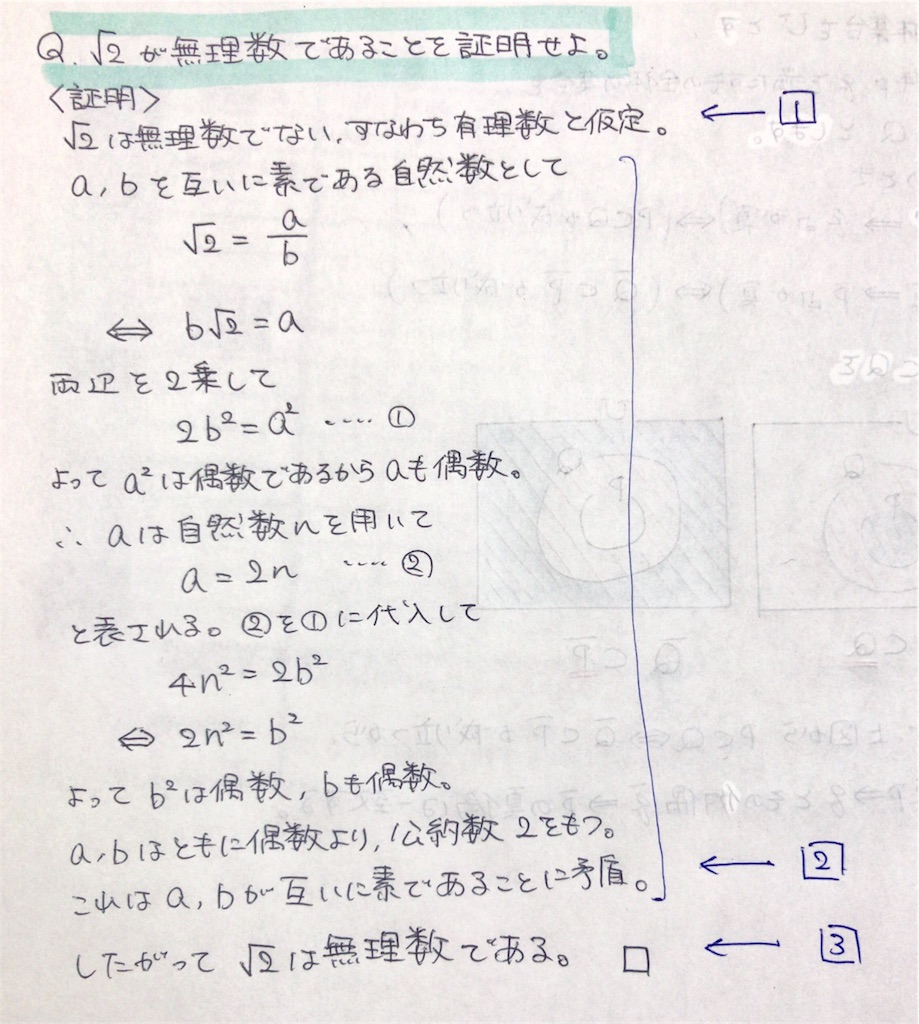 Q. √2 が無理数であることを証明せよ。
〈証明〉
√2 は無理数でない, すなわち有理数と仮定。 ← 1
a, b を互いに素である自然数として
√2 = a/b
⇔ b√2 = a
両辺を2乗して
2b² = a² ‥‥ ①
よって a² は偶数であるから a も偶数。
∴ a は自然数 n を用いて
a = 2n ‥‥ ②
と表される。②を①に代入して
4n² = 2b²
⇔ 2n² = b²
よって b² は偶数, b も偶数。
a, b はともに偶数より, 公約数 2 をもつ。
これは a, b が互いに素であることに矛盾。 ← 2
したがって √2 は無理数である。 □ ← 3